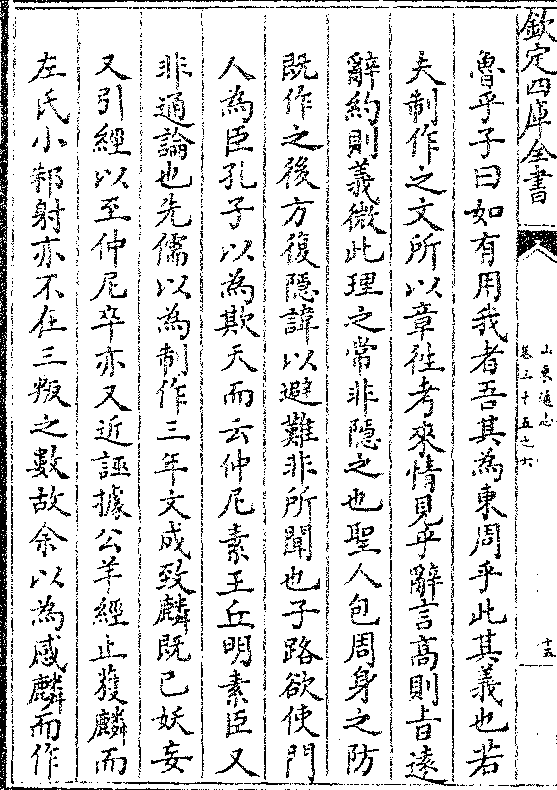 欽定四庫全書
山東通志
卷三十五之六
十五
魯乎子曰如有用我者吾其為東周乎此其義也若
夫制作之文所以章徃考來情見乎辭言高則旨遠
辭約則義微此理之常非隱之也聖人包周身之防
既作之後方復隱諱以避難非所聞也子路欲使門
人為臣孔子以為欺天而云仲尼素王丘明素臣又
非通論也先儒以為制作三年文成致麟既已妖妄
又引經以至仲尼卒亦又近誣據公羊經止獲麟而
左氏小邾射亦不在三叛之數故余以為感麟而作